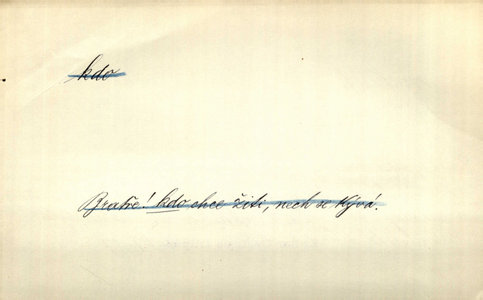 kdo
Bratře! kdo chce žíti, nech se kývá.